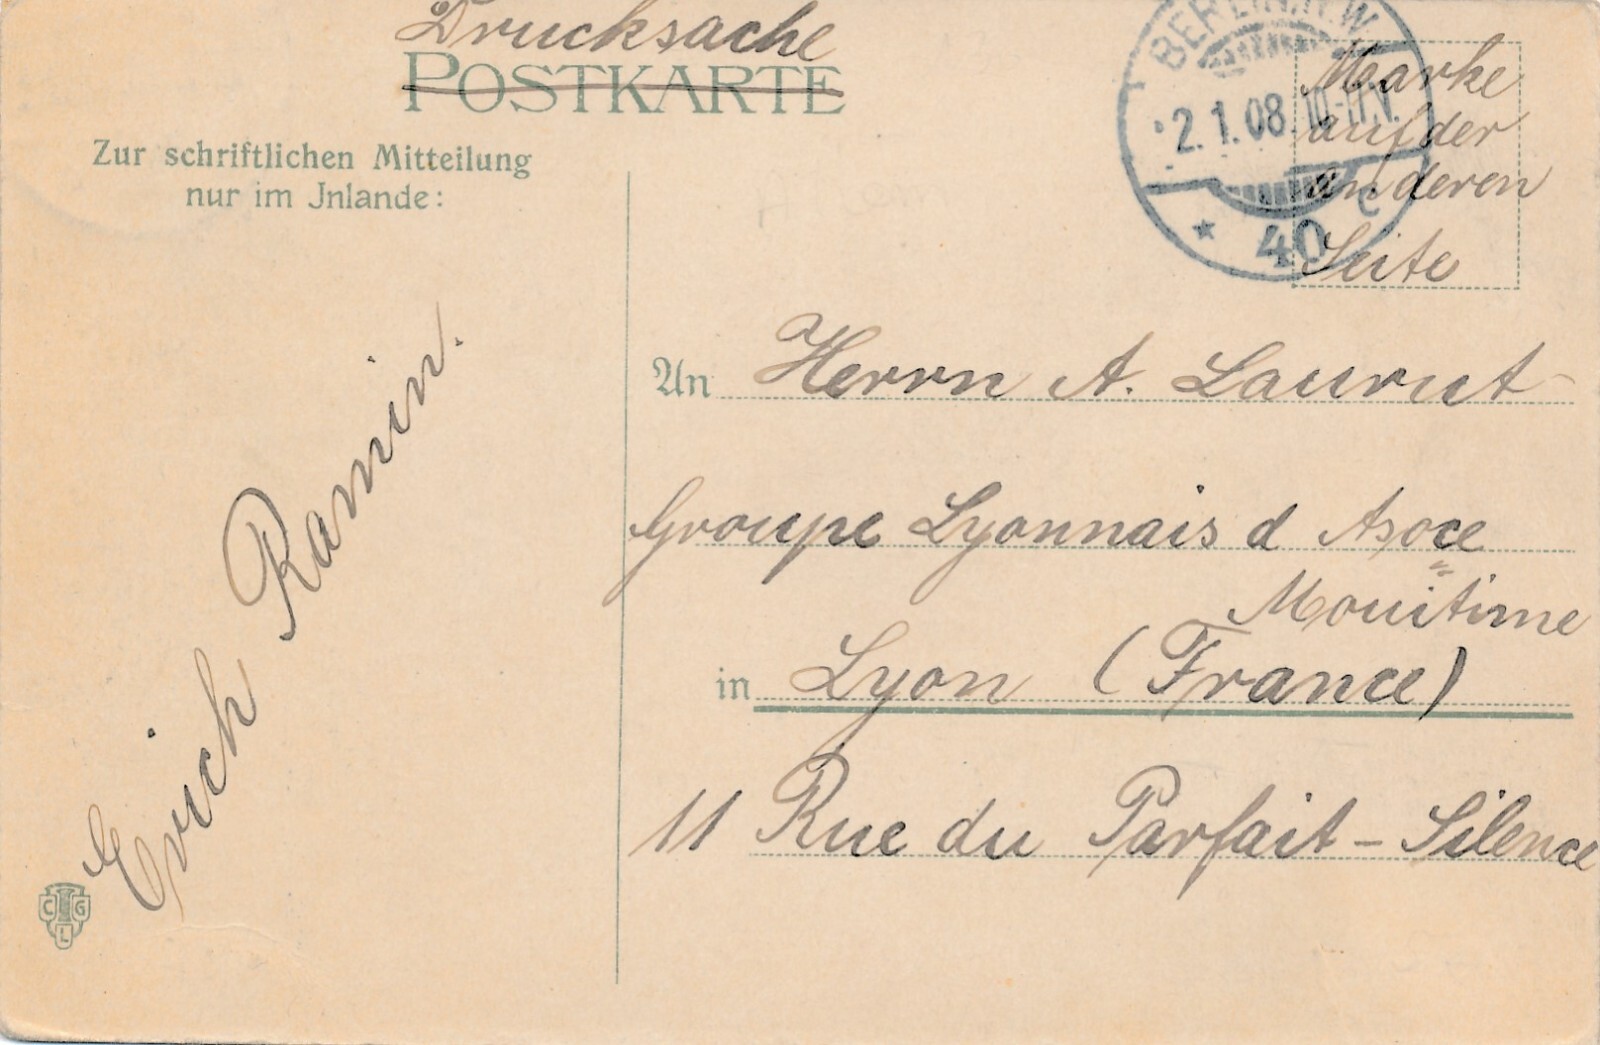 Drucksache
POSTKARTE
Zur schriftlichen Mitteilung
nur im Jnlande:
BERLIN N.W.
2.1.08. 10-11 V.
* 40 c
Marke
auf der
anderen
Seite
An Herrn A. Laurut
Groupe Lyonnais d Asoce
Mouitime
in Lyon (France)
11 Rue du Parfait-Silence
Erich Ramin.
C G L